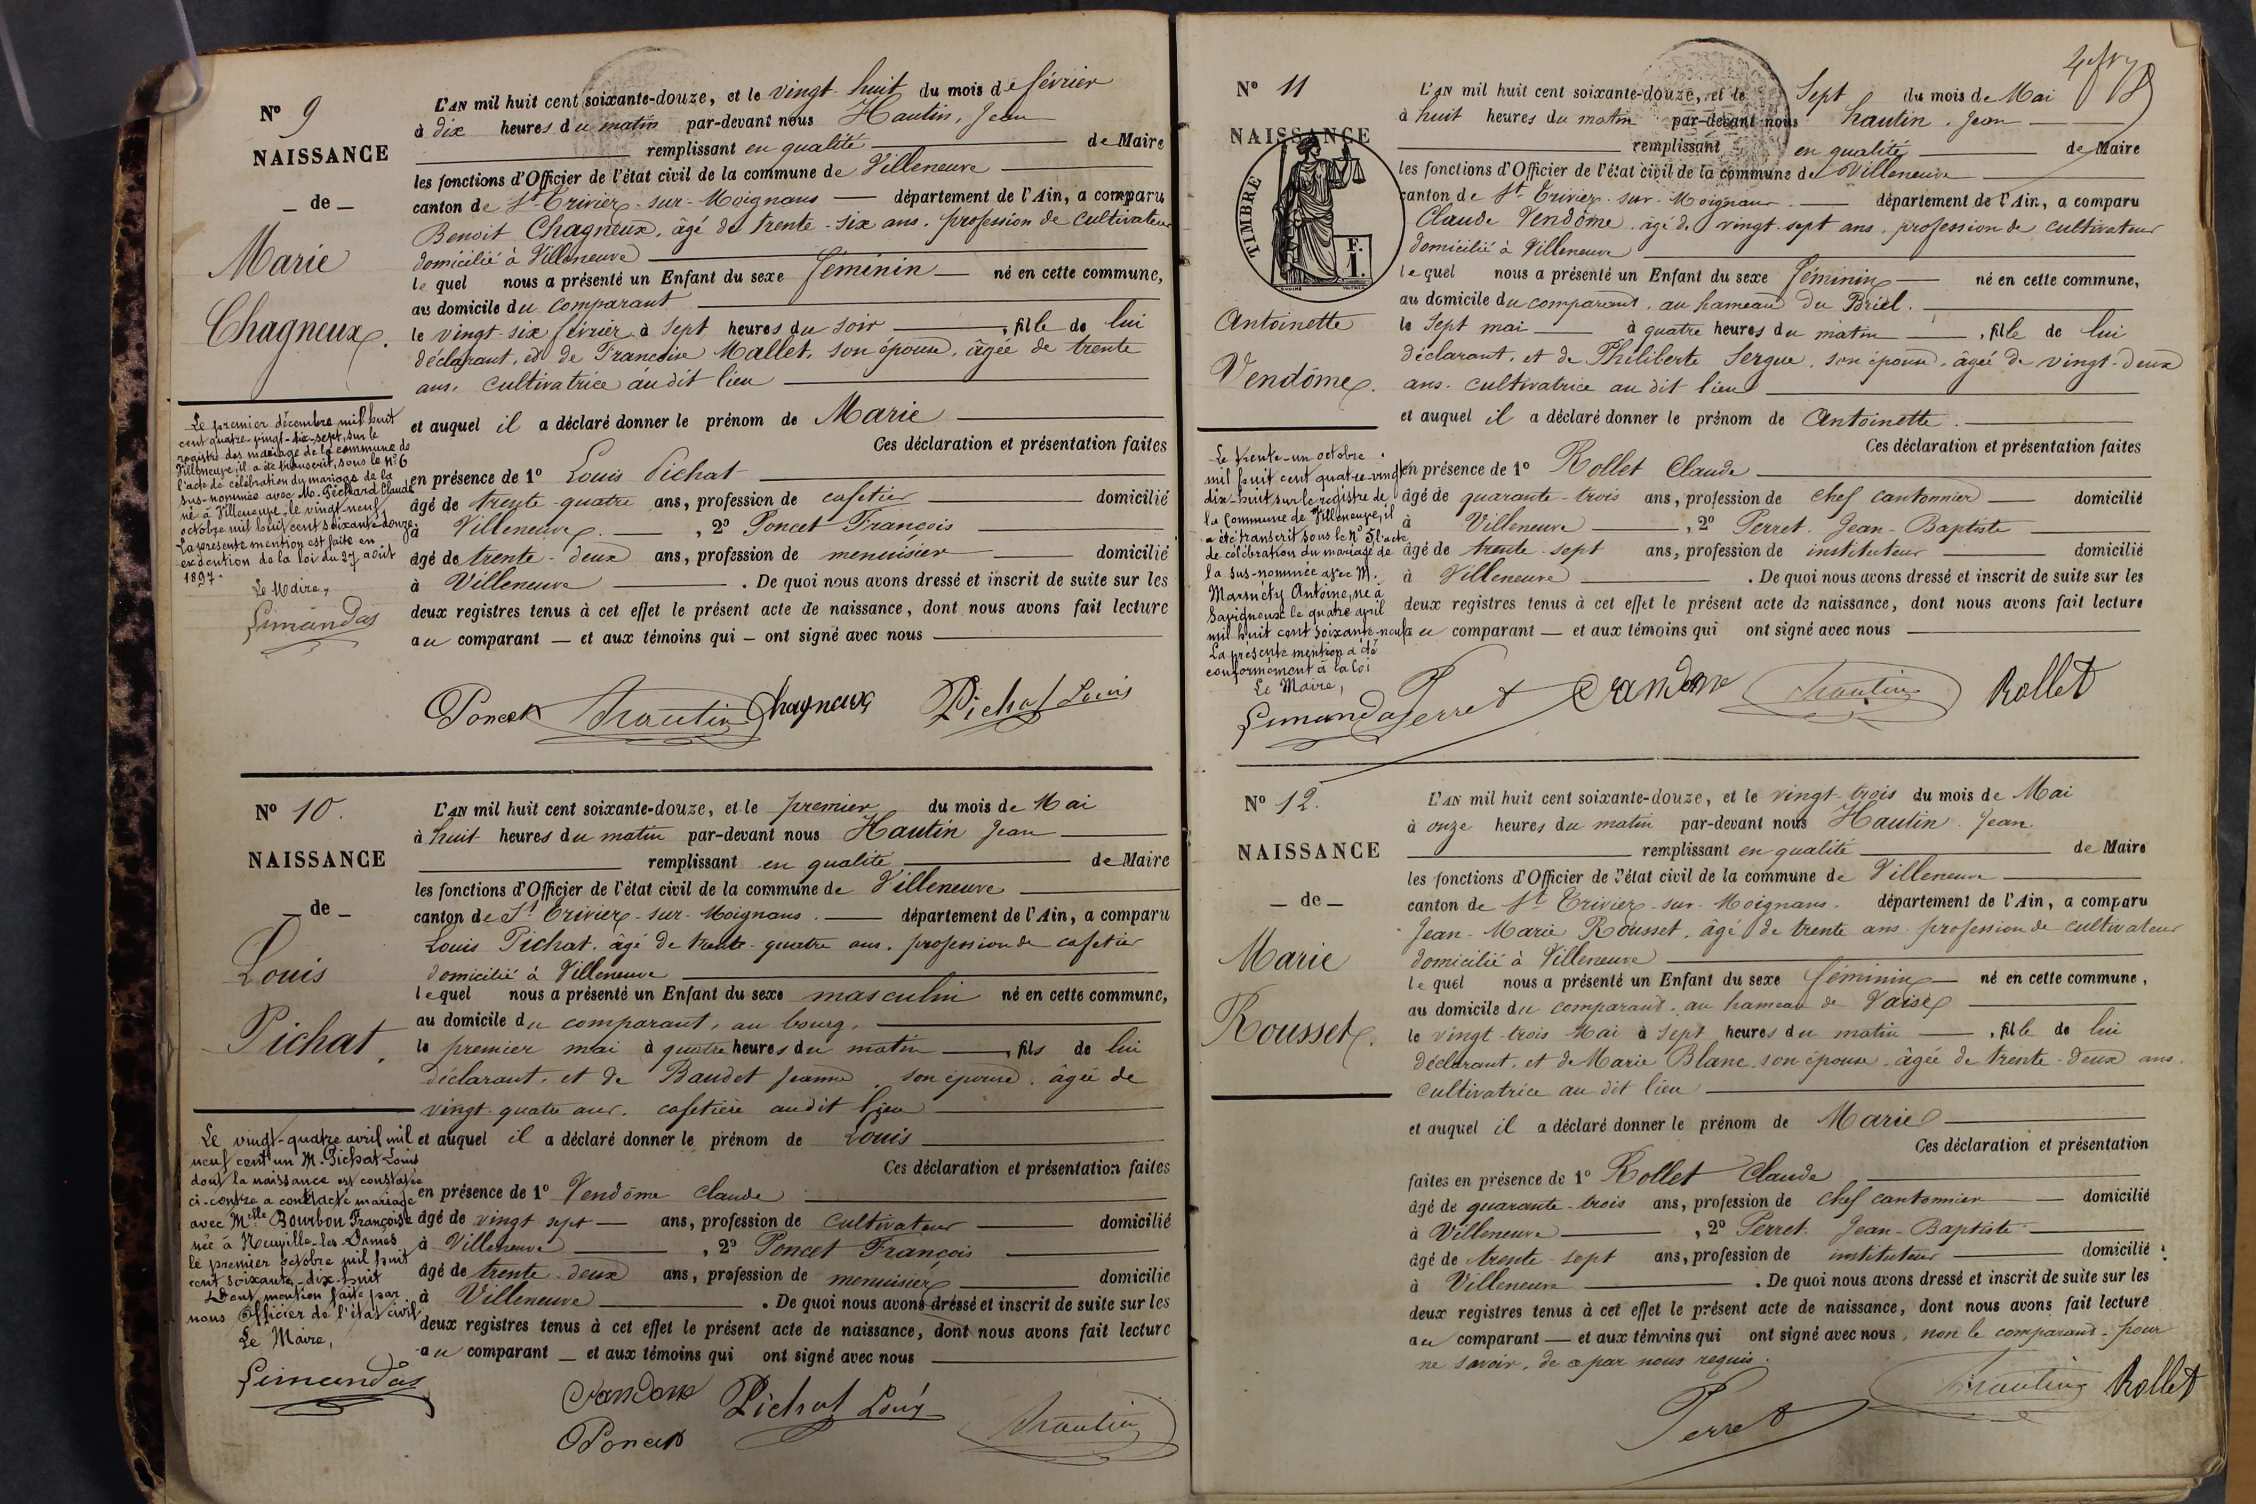 Nº 9
NAISSANCE
_ de _
Marie
Chagneux.
Le premier décembre mil huit
cent quatre-vingt-dix-sept, sur le
registre des mariage de la commune de
Villeneuve, il a été transcrit, sous le Nº 6
l'acte de célébration du mariage de la
sus-nommée avec M. Péchard Claude
né à Villeneuve, le vingt-neuf
octobre mil huit cent soixante-douze.
La présente mention est faite en
exécution de la loi du 27 août
1897.
Le Maire,
Limandas
L'AN mil huit cent soixante-douze, et le vingt-huit du mois de février
à dix heures du matin par-devant nous Hautin, Jean
remplissant en qualité de Maire
les fonctions d'Officier de l'état civil de la commune de Villeneuve
canton de St Trivier-sur-Moignans département de l'Ain, a comparu
Benoit Chagneux, âgé de trente-six ans, profession de cultivateur
domicilié à Villeneuve
lequel nous a présenté un Enfant du sexe féminin né en cette commune,
au domicile du comparant
le vingt-six février à sept heures du soir, fille de lui
déclarant, et de Francoise Mallet, son épouse, âgée de trente
ans, cultivatrice audit lieu
et auquel il a déclaré donner le prénom de Marie
Ces déclaration et présentation faites
en présence de 1º Louis Pichat
âgé de trente-quatre ans, profession de cafetier domicilié
à Villeneuve, 2º Poncet François
âgé de trente-deux ans, profession de menuisier domicilié
à Villeneuve. De quoi nous avons dressé et inscrit de suite sur les
deux registres tenus à cet effet le présent acte de naissance, dont nous avons fait lecture
au comparant — et aux témoins qui — ont signé avec nous
Poncet Hautin Chagneux Pichat Louis
Nº 10.
NAISSANCE
_ de _
Louis
Pichat.
Le vingt-quatre avril mil
neuf cent un M. Pichat Louis
dont la naissance est constatée
ci-contre a contracté mariage
avec Melle Bourbon Françoise
née à Neuville-les-Dames
le premier octobre mil huit
cent soixante-dix-huit
Dont mention faite par
nous Officier de l'état civil
Le Maire,
Limandas
L'AN mil huit cent soixante-douze, et le premier du mois de Mai
à huit heures du matin par-devant nous Hautin Jean
remplissant en qualité de Maire
les fonctions d'Officier de l'état civil de la commune de Villeneuve
canton de St Trivier-sur-Moignans. département de l'Ain, a comparu
Louis Pichat, âgé de trente-quatre ans, profession de cafetier
domicilié à Villeneuve
lequel nous a présenté un Enfant du sexe masculin né en cette commune,
au domicile du comparant, au bourg,
le premier mai à quatre heures du matin, fils de lui
déclarant, et de Baudet Jeanne, son épouse, âgée de
vingt-quatre ans, cafetière audit lieu
et auquel il a déclaré donner le prénom de Louis
Ces déclaration et présentation faites
en présence de 1º Vendôme Claude
âgé de vingt sept — ans, profession de cultivateur domicilié
à Villeneuve, 2º Poncet François
âgé de trente-deux ans, profession de menuisier domicilié
à Villeneuve. De quoi nous avons dressé et inscrit de suite sur les
deux registres tenus à cet effet le présent acte de naissance, dont nous avons fait lecture
au comparant — et aux témoins qui ont signé avec nous
Vandome Pichat Louis Hautin
Poncet
Nº 11
NAISSANCE
TIMBRE
F.
1.
Antoinette
Vendôme.
Le trente-un octobre
mil huit cent quatre-vingt
dix-huit sur le registre de
la Commune de Villeneuve, il
a été transcrit sous le Nº 5 l'acte
de célébration du mariage de
la sus-nommée avec M.
Marméty Antoine, né à
Savigneux le quatre avril
mil huit cent soixante-neuf
La présente mention a été
conformément à la loi
Le Maire,
Limandas
L'AN mil huit cent soixante-douze, et le Sept du mois de Mai
à huit heures du matin par-devant nous Hautin. Jean
remplissant en qualité de Maire
les fonctions d'Officier de l'état civil de la commune de Villeneuve
canton de St Trivier-sur-Moignans département de l'Ain, a comparu
Claude Vendôme, âgé de vingt-sept ans, profession de cultivateur
domicilié à Villeneuve
lequel nous a présenté un Enfant du sexe féminin né en cette commune,
au domicile du comparant, au hameau du Briel.
le Sept mai à quatre heures du matin, fille de lui
déclarant, et de Philiberte Sergue, son épouse, âgée de vingt-deux
ans, cultivatrice au dit lieu
et auquel il a déclaré donner le prénom de Antoinette.
Ces déclaration et présentation faites
en présence de 1º Rollet Claude
âgé de quarante-trois ans, profession de chef cantonnier domicilié
à Villeneuve, 2º Perret. Jean-Baptiste
âgé de trente-sept ans, profession de instituteur domicilié
à Villeneuve. De quoi nous avons dressé et inscrit de suite sur les
deux registres tenus à cet effet le présent acte de naissance, dont nous avons fait lecture
au comparant — et aux témoins qui ont signé avec nous
Perret Vandome Hautin Rollet
Nº 12.
NAISSANCE
_ de _
Marie
Rousset.
L'AN mil huit cent soixante-douze, et le vingt-trois du mois de Mai
à onze heures du matin par-devant nous Hautin. Jean.
remplissant en qualité de Maire
les fonctions d'Officier de l'état civil de la commune de Villeneuve
canton de St Trivier-sur-Moignans. département de l'Ain, a comparu
Jean-Marie Rousset, âgé de trente ans profession de cultivateur
domicilié à Villeneuve
lequel nous a présenté un Enfant du sexe féminin né en cette commune,
au domicile du comparant, au hameau de Vaise
le vingt-trois Mai à sept heures du matin, fille de lui
déclarant, et de Marie Blanc, son épouse, âgée de trente-deux ans.
cultivatrice au dit lieu
et auquel il a déclaré donner le prénom de Marie
Ces déclaration et présentation
faites en présence de 1º Rollet Claude
âgé de quarante-trois ans, profession de chef cantonnier — domicilié
à Villeneuve, 2º Perret. Jean-Baptiste
âgé de trente-sept ans, profession de instituteur domicilié
à Villeneuve. De quoi nous avons dressé et inscrit de suite sur les
deux registres tenus à cet effet le présent acte de naissance, dont nous avons fait lecture
au comparant — et aux témoins qui ont signé avec nous, non le comparant, pour
ne savoir, de ce par nous requis.
Perret Hautin Rollet